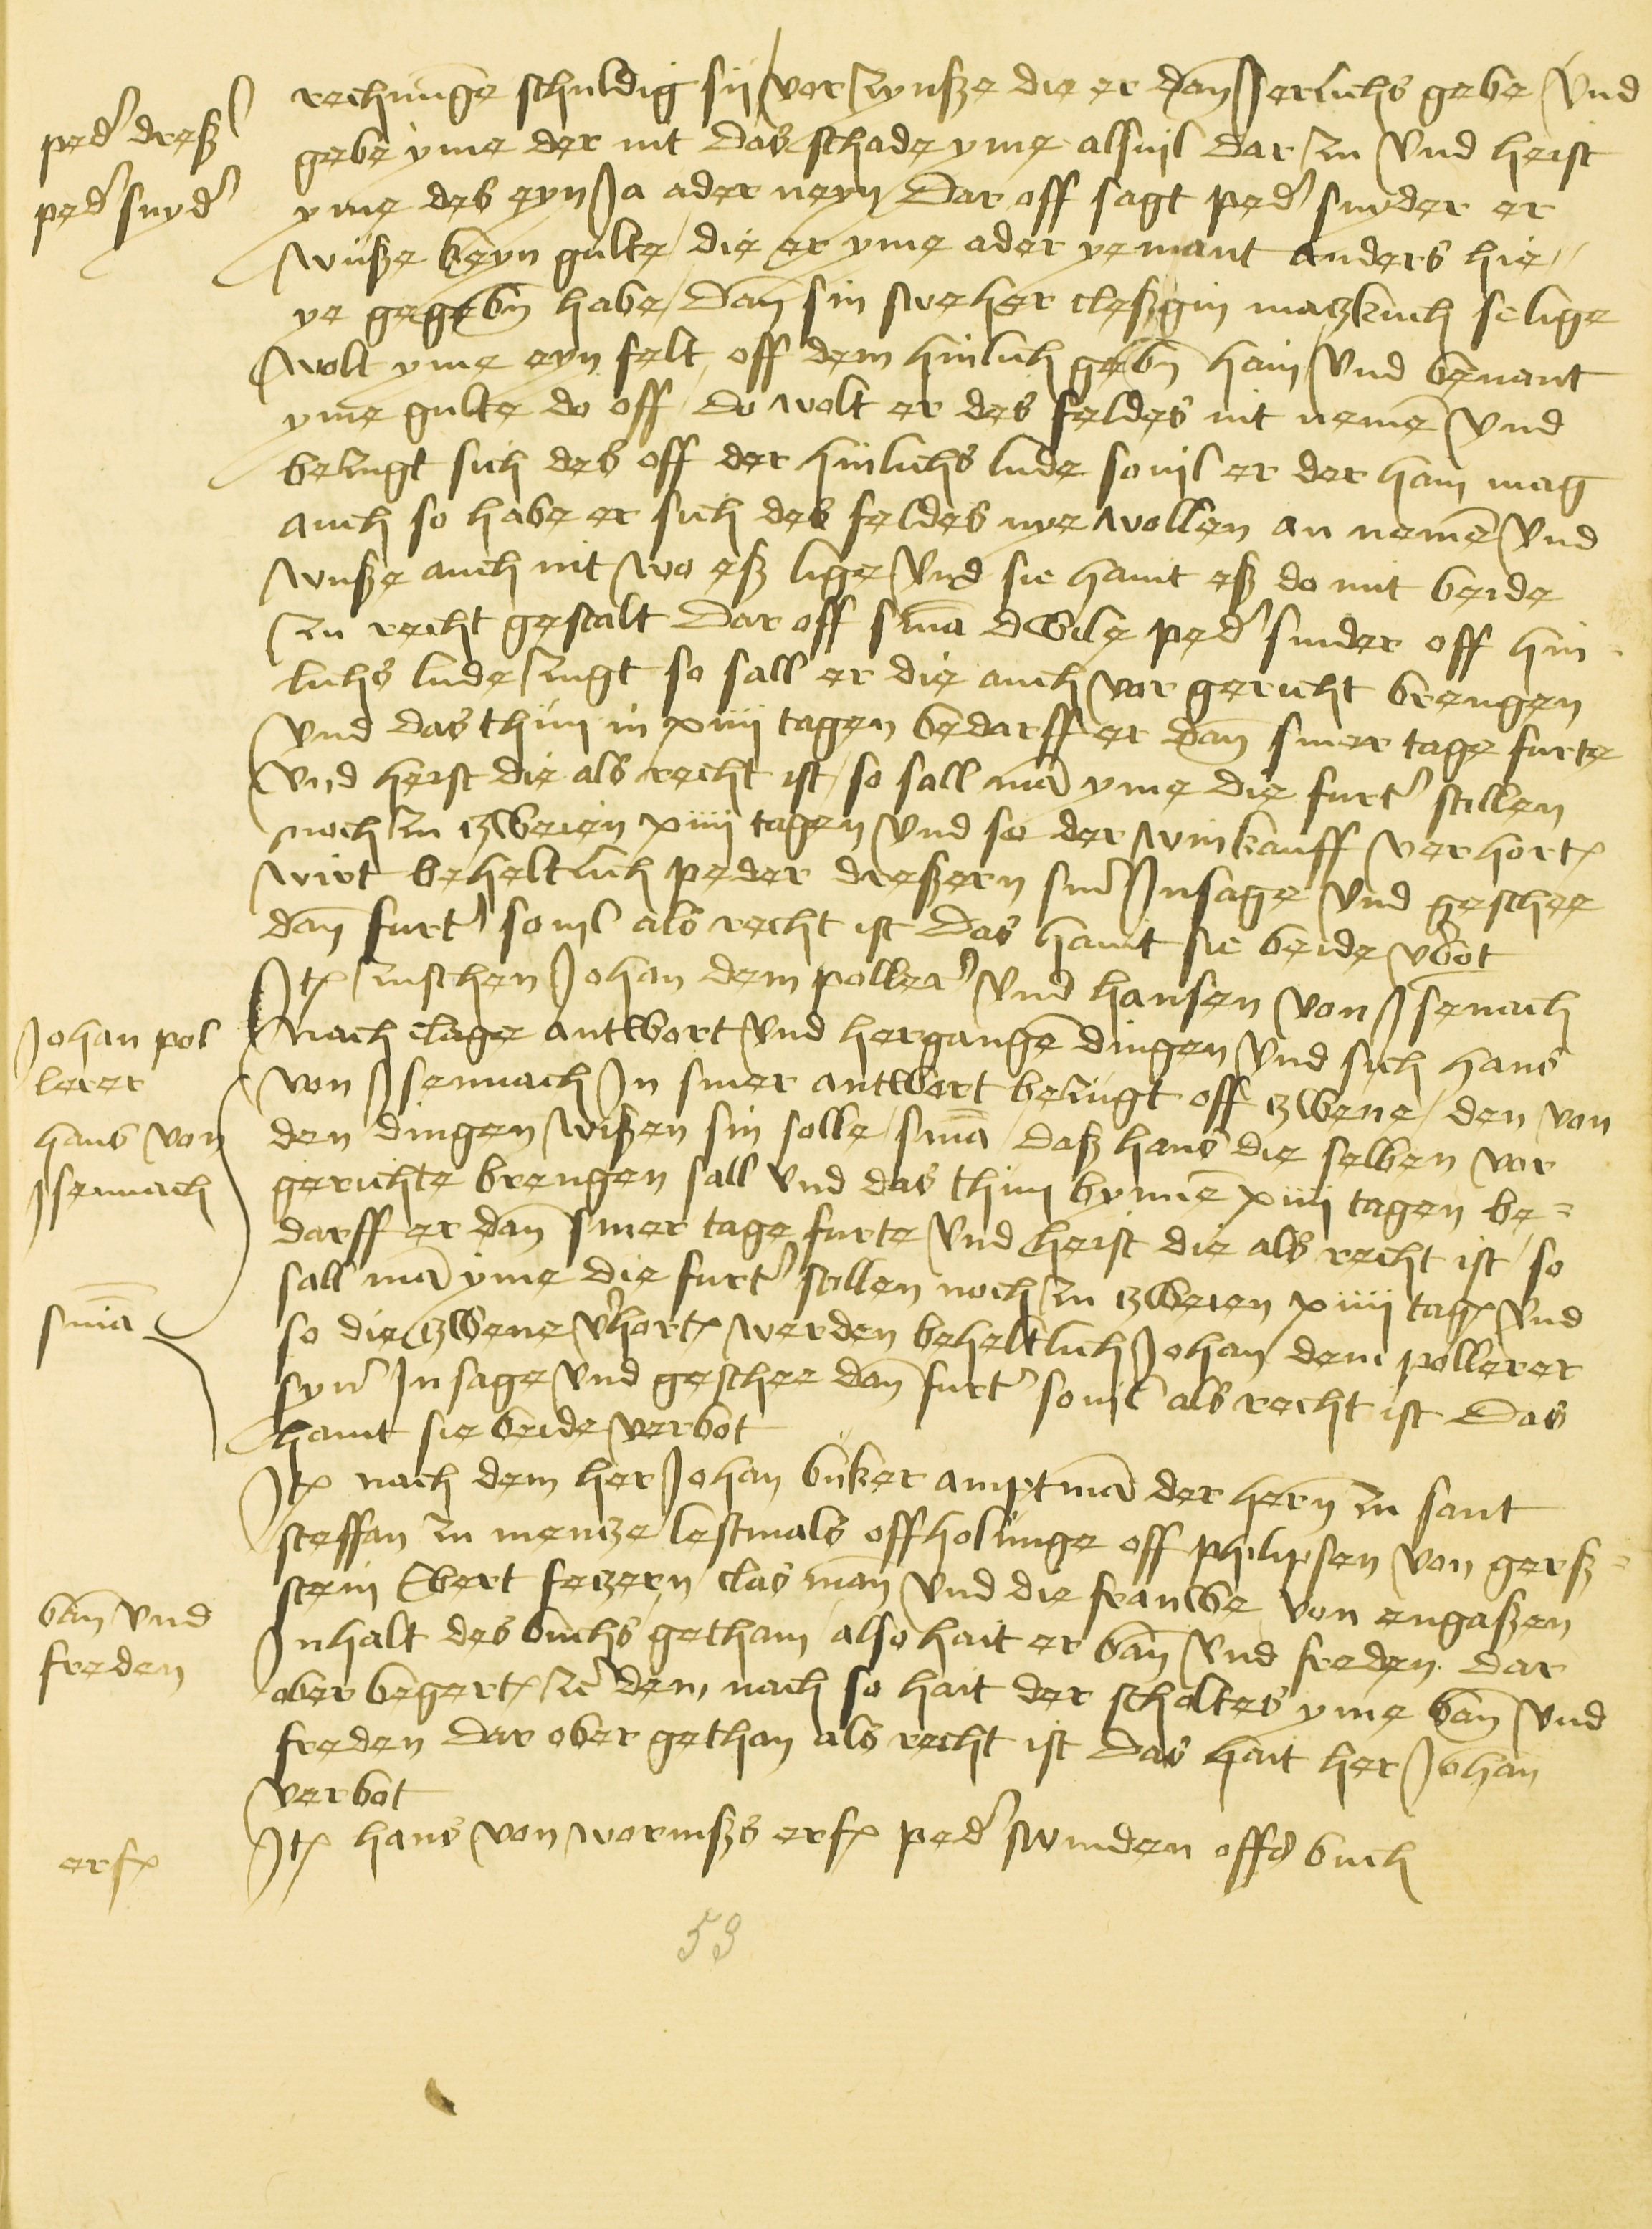 rechnunge schuldig sij vor zynsze die er dan Jerlichs gebe Vnd
pedʾ dreszʾ
gebe yme der nit das schade yme alsuil dar zu Vnd heist
pedʾ snydʾ
yme des eyn Ja ader neyn Dar off sagt pedʾ snyder er
wusze keyn gulte die er yme ader yemant anders hie
ye gegebn habe dan sin sweher cleszgin matzkuch selige
wolt yme eyn felt off dem hinlich gebn hain Vnd benant
yme gulte do off do wolt er des feldes nit neme Vnd
bezugt sich des off der hinlichs lude souil er der hain mag
auch so habe er sich des feldes nye wollen an neme Vnd
wusze auch nit wo esz lige Vnd sie haint esz do mit beide
zu recht gestalt Dar off sma dwile pedʾ snider off hin-
lichs lude zugt so sall er die auch vor gericht brengen
Vnd das thun in xiiii tagen bedarff er dan siner tage furte
Vnd heist die als recht ist so sall ma yme die furtʾ stillen
noch zu zweien xiiii tagen Vnd so der winkauff verhort
wirt beheltlich peder dreszern sinʾ Insage Vnd geschee
dan furtʾ souil als recht ist Das haint sie beide vbot
It zuschen Johan dem pollerʾ Vnd hansen von Jsenach
Johan pol
lerer
Nach clage antwort Vnd hergange dingen Vnd sich hans
von Jsennach In siner antwort bezugt off zwene den von
hans von
Jsennach
den dingen wiszen sin solle sma dasz hans die selben vor
gerichte brengen sall Vnd das thun bynne xiiii tagen be-
darff er dan siner tage furte Vnd heist die als recht ist so
sall ma yme die furtʾ stillen noch zu zweien xiiii tag Vnd
sma
so die zwene vhort werden beheltlich Johan dem pollerer
synʾ Insage Vnd geschee dan furtʾ souil als recht ist Das
haint sie beide verbot
It nach dem her Johan buker amptma der hern zu sant
steffan zu mentze lestmals offholunge off philipsen von gersz-
stein Ebert fetzern clas man Vnd die frauwe von engaszen
ban Vnd
freden
Inhalt des buchs gethain also hait er ban Vnd freden dar
ober begert zu dem nach so hait der scholtes yme ban Vnd
freden dar ober gethan als recht ist Das hait her Johan
verbot
erf
It hans von wormszs erf pedʾ swinden offs buch
53